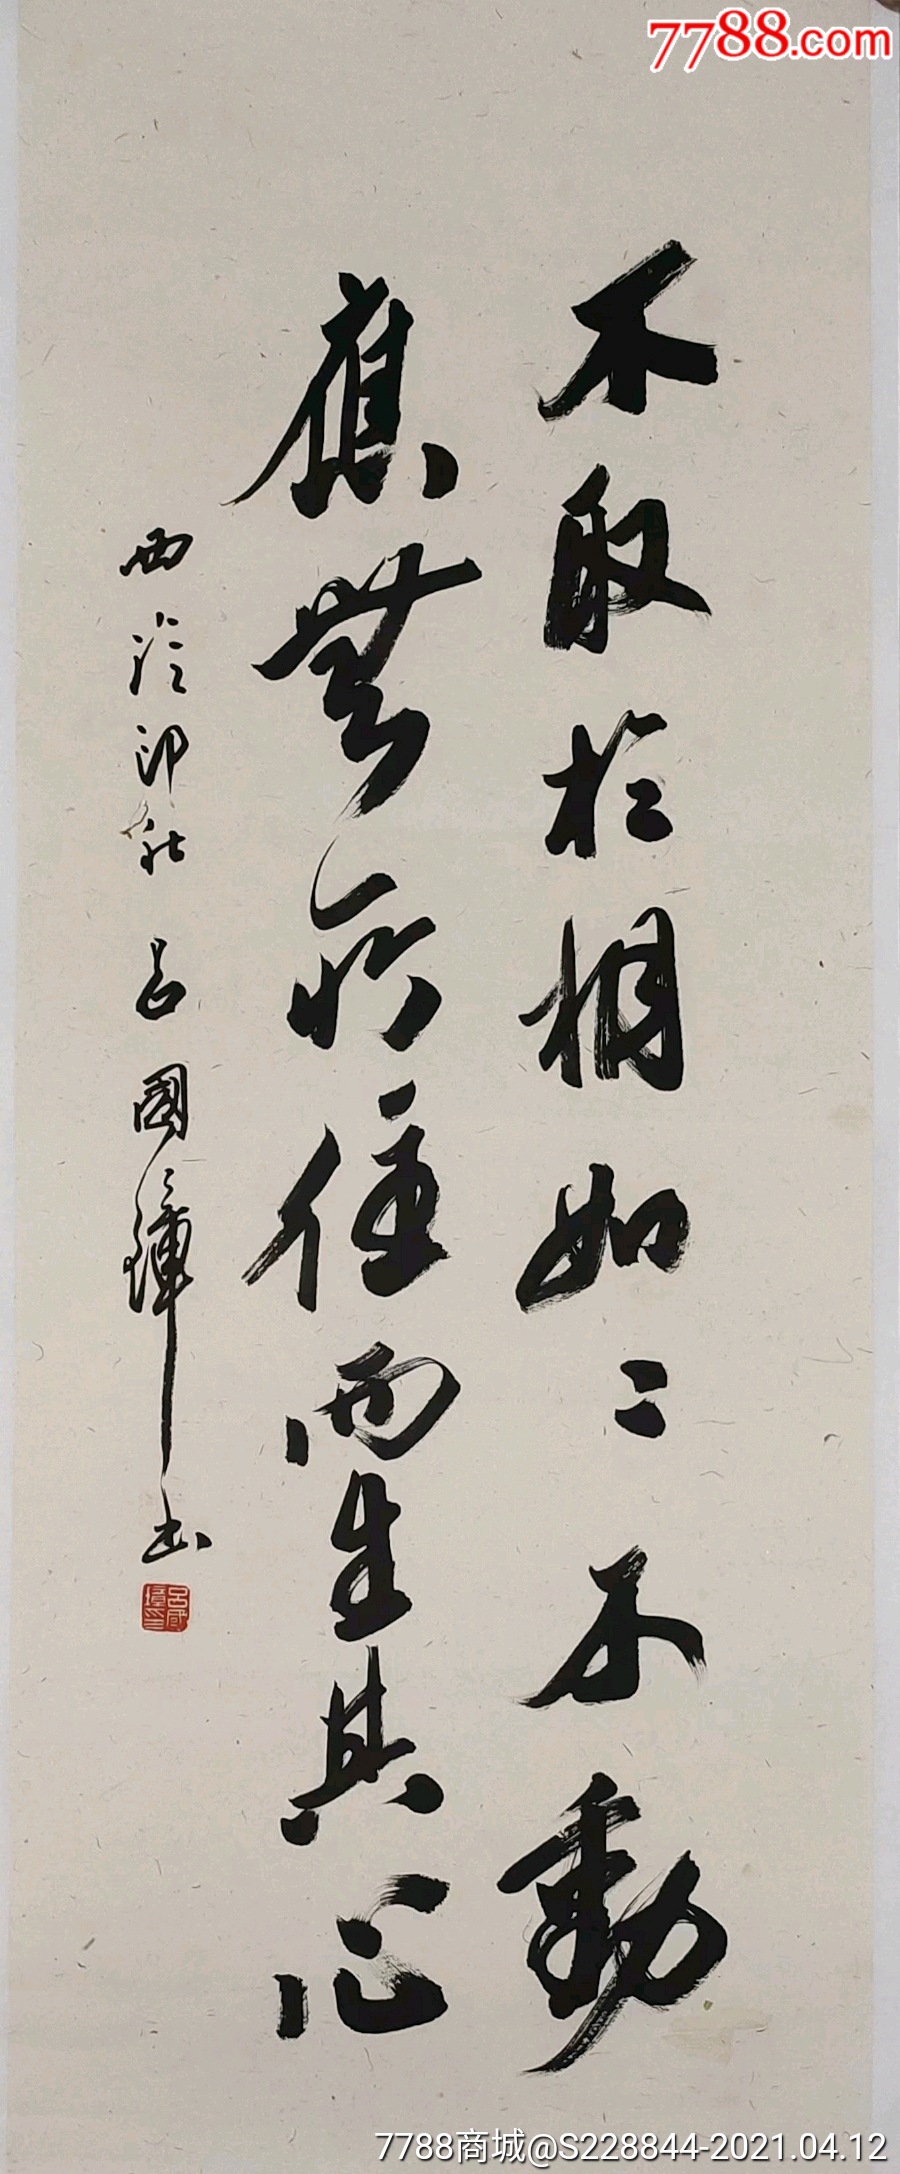 7788.com
不取於相如二不動
應無所住而生其心
西泠印社 吕國璋书
吕國璋印
7788商城@S228844-2021.04.12